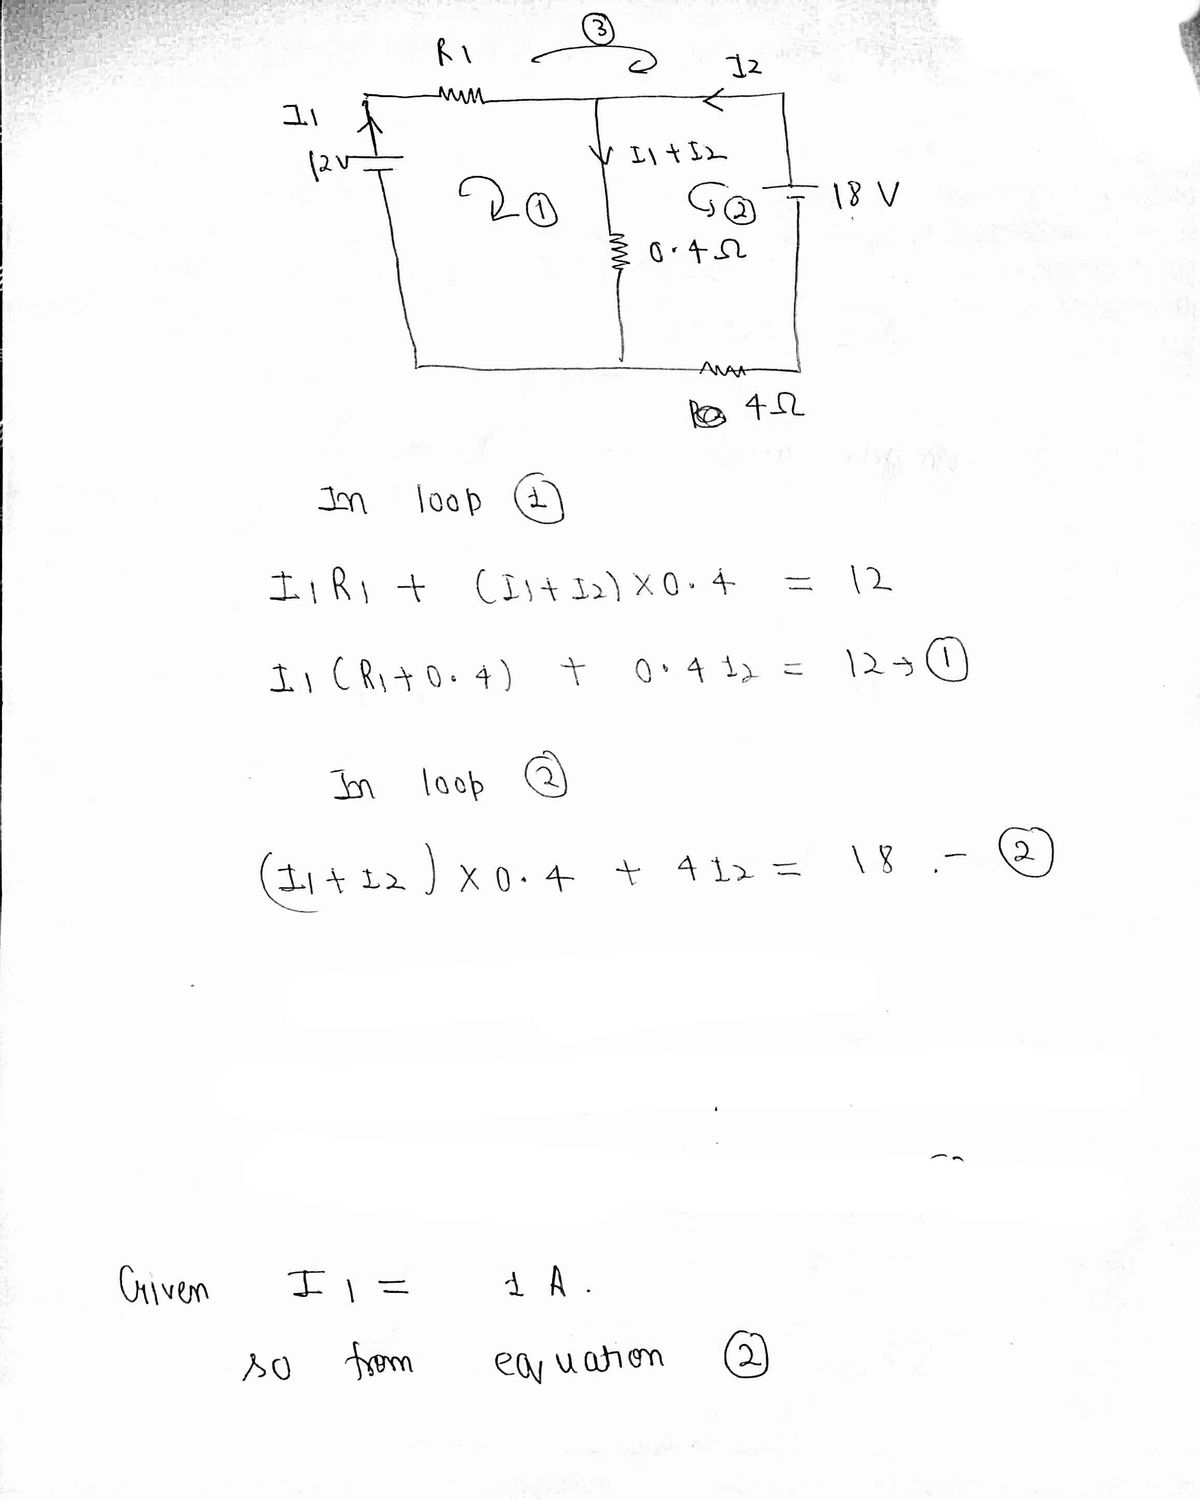 3
R1
I2
I1
12V
I1 + I2
1
2
18 V
0.4Ω
4Ω
In loop 1
I1R1 + (I1 + I2) × 0.4 = 12
I1 (R1 + 0.4) + 0.4 I2 = 12 → 1
In loop 2
(I1 + I2) × 0.4 + 4 I2 = 18 . - 2
Given I1 = 1 A.
so from equation 2